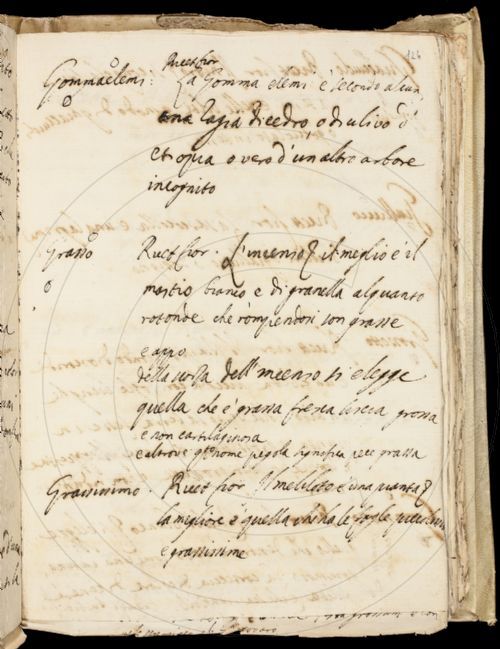 126
Ricet fior
Gommaelemi: La Gomma elemi è secondo alcun
una ragia di cedro, o d'ulivo d'
etiopia o vero d'un altro arbore
incognito
Grasso Ricet fior. L'incenso il meglio è il
mastio bianco e di granella alquanto
rotonde che rompendosi son grasse
e appo
della scorza dell'incenso si elegge
quella che è grassa fresca liscia grossa
e non cartilaginosa
e altrove nome pegola significa pece grassa
Grassissimo. Ricet fior Il meliloto è una pianta
la migliore è quella che ha le foglie picciole
e grassissime